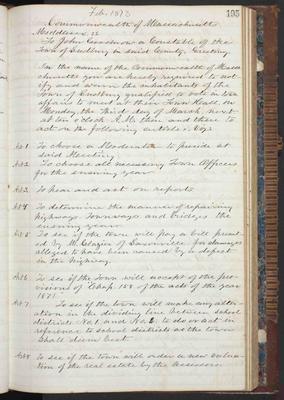 Feb. 1873
195
Commonwealth of Massachusetts
Middlesex, ss
To John Goodnow a Constable of the
Town of Sudbury in said County, Greeting
In the name of the Commonwealth of Massa
chusetts you are hereby required to not
ify and warn the inhabitants of the
town of Sudbury qualified to vote in town
affairs to meet at their Town Hall, on
Monday, the Third day of March, next
at ten o'clock A.M. then and there to
act on the following articles. Viz:
Art 1 To choose a Moderator to preside at
said Meeting
Art 2. To choose all necessary Town Officers
for the ensuing year
Art 3 To hear and act on reports
Art 4 To determine the manner of repairing
highways, Townways and bridges the
ensuing year
Art 5 To see if the town will pay a bill present-
ed by M. Glazier of for damages
alleged to have been caused by a defect
in the highway.
Art 6 To see if the town will accept of the pro-
visions of Chap. 158 of the acts of the year
1871
Art 7 To see if the town will make any alter-
ation in the dividing line between school
districts No 1, and No 2, to do or act in
reference to school districts as the town
shall deem best.
Art 8 To see if the town will order a new valua-
tion of the real estate by the Assessors